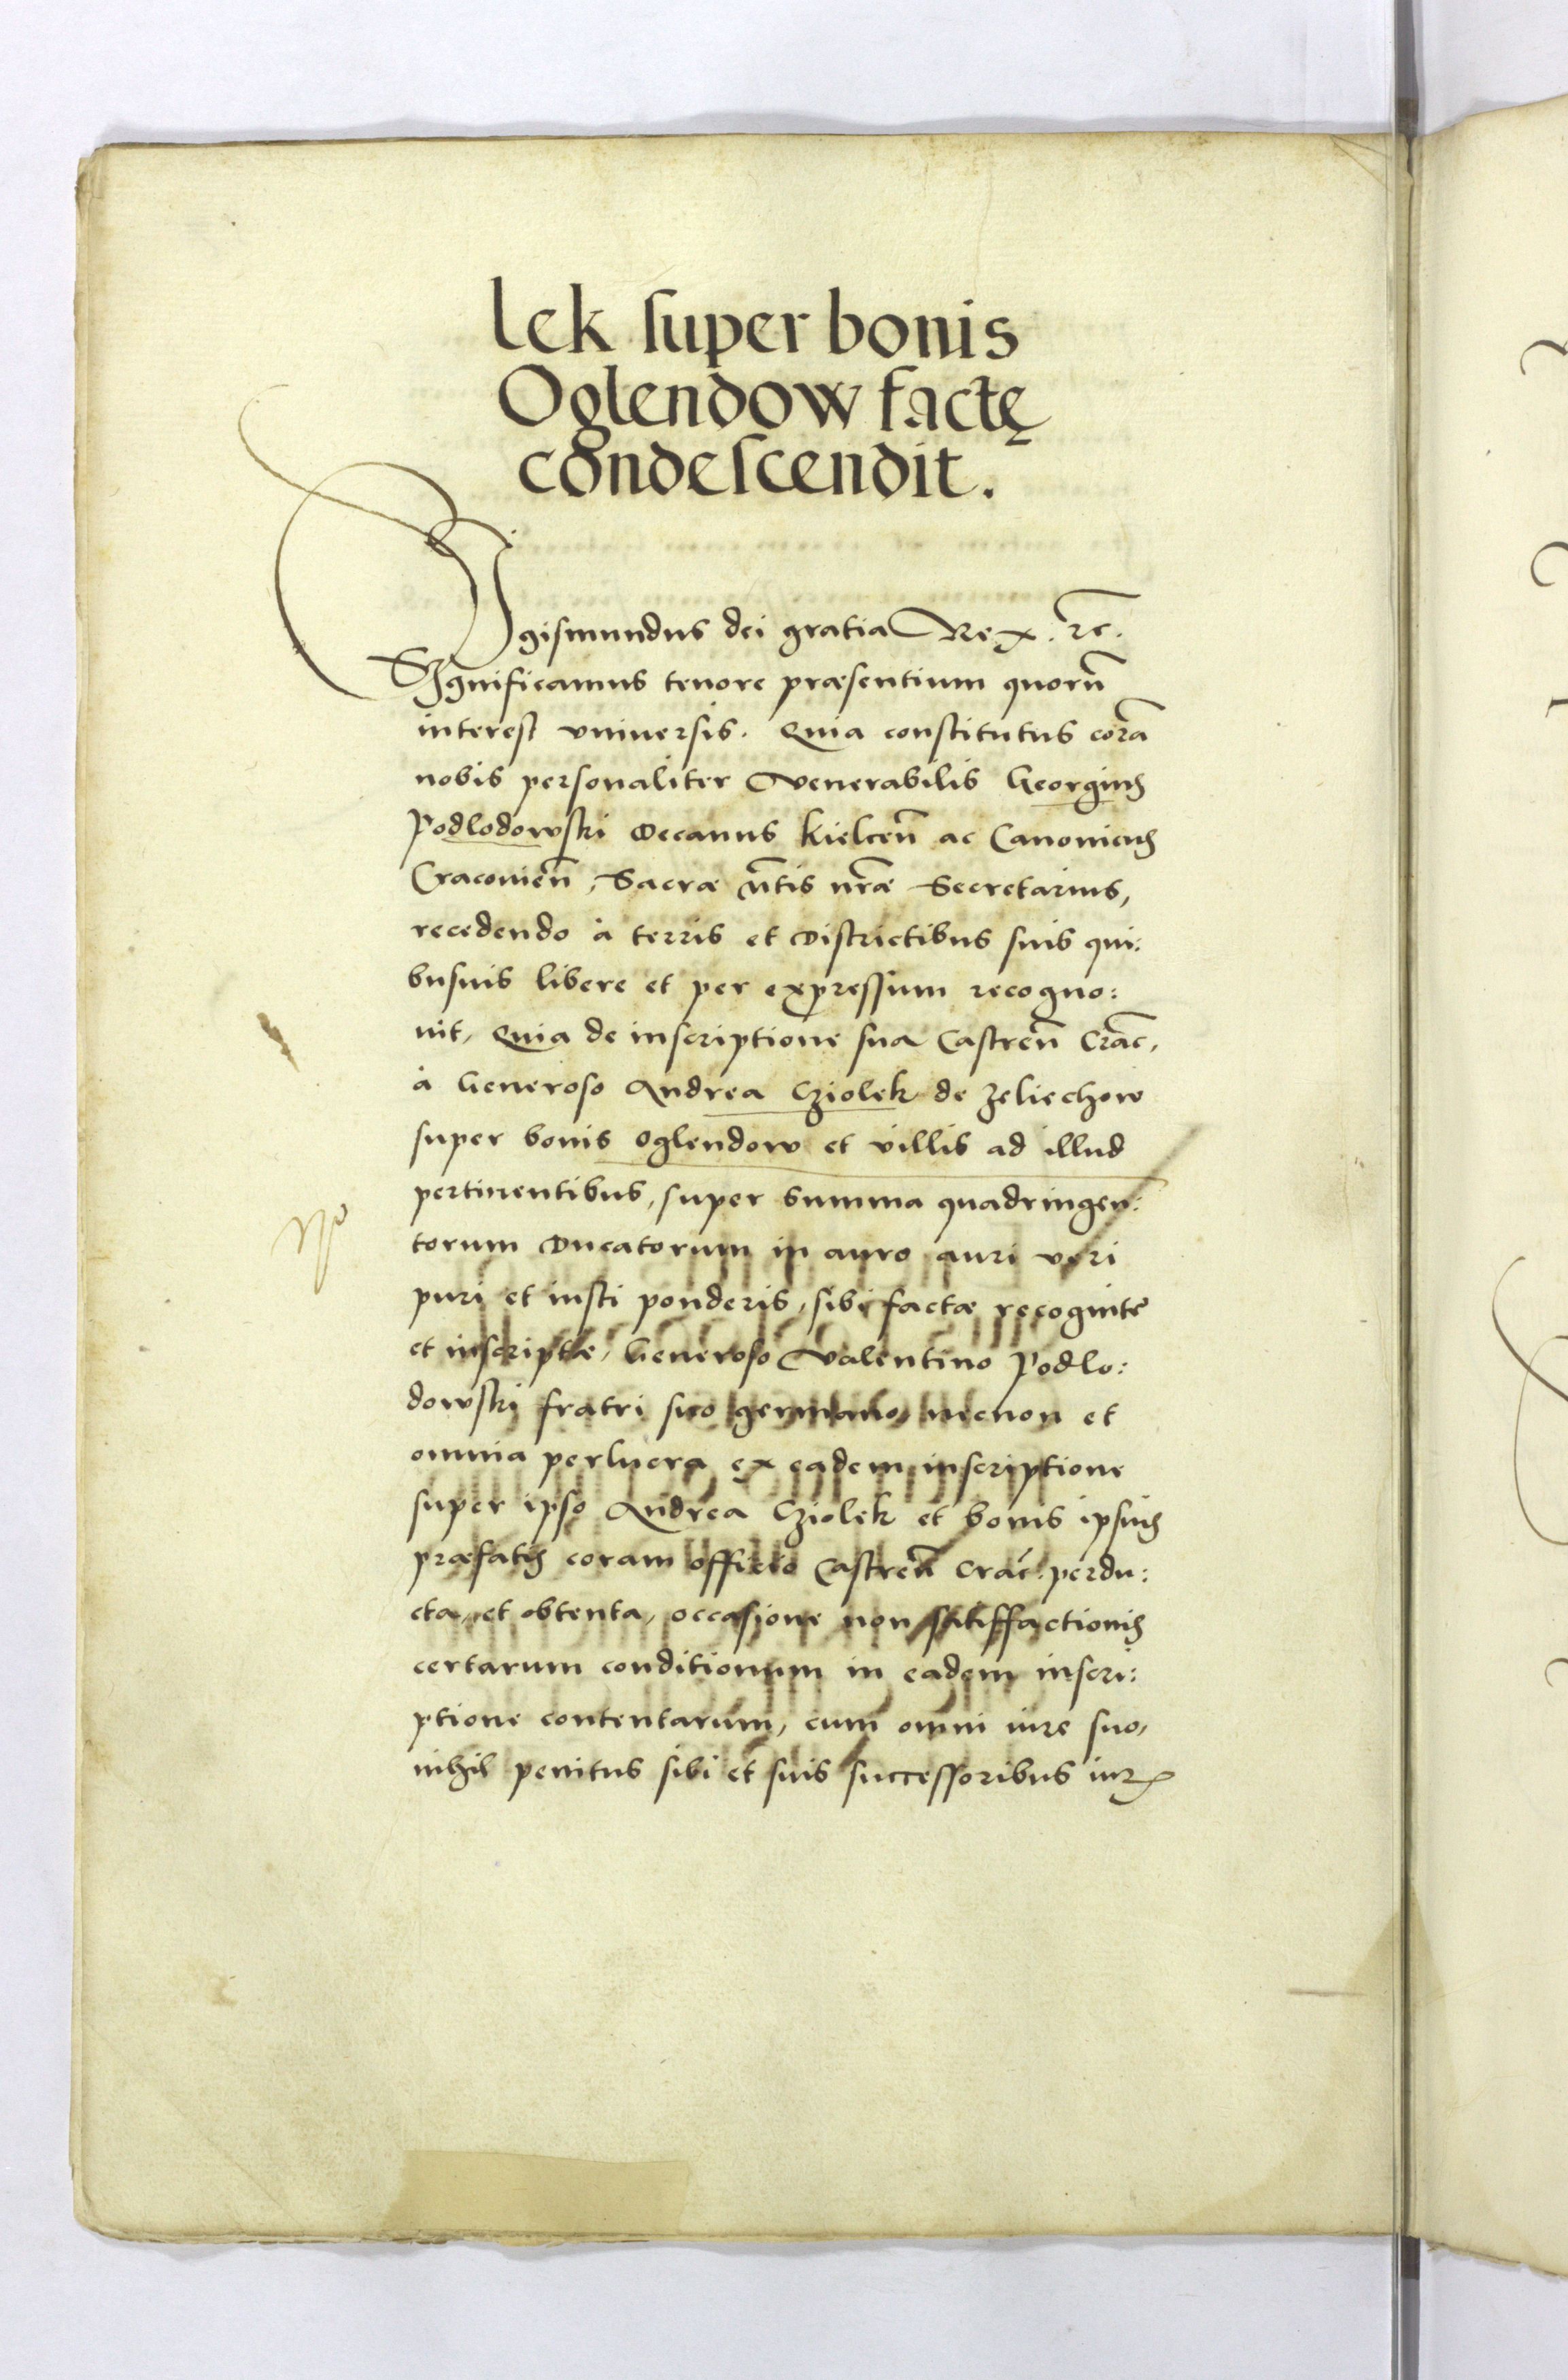 lek super bonis
Oglendow factę
condescendit.
Sigismundus dei gratia Rex. rc̃.
Significamus tenore præsentium quorũ
interest vniuersis. Quia constitutus corã
nobis personaliter Venerabilis Georgius
Podlodowski Decanus Kielceñ ac Canonicus
Cracovieñ, Sacræ m̃tis nr̃æ Secretarius,
recedendo à terris et Districtibus suis qui:
busuis libere et per expressum recogno:
uit, Quia de inscriptione sua Castreñ Crac̃,
à Generoso Andrea Cziolek de Zeliechow
super bonis Oglendow et villis ad illud
pertinentibus, super summa quadringen:
torum Ducatorum in auro auri veri
puri et iusti ponderis, sibi factæ recognitę
et inscriptæ, Generoso Valentino Podlo:
dowski fratri suo germano, necnon et
omnia perlucra ex eadem inscriptione
super ipso Andrea Cziolek et bonis ipsius
præfatis coram officio Castreñ Crac̃. perdu:
cta, et obtenta, occasione non satisfactionis
certarum conditionum in eadem inscri:
ptione contentarum, cum omni iure suo,
nihil penitus sibi et suis successoribus iur